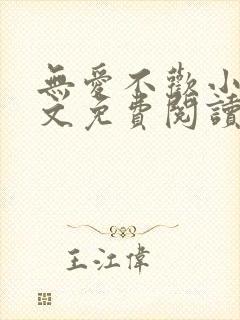 無愛不歡小
文免費閱讀
王江偉